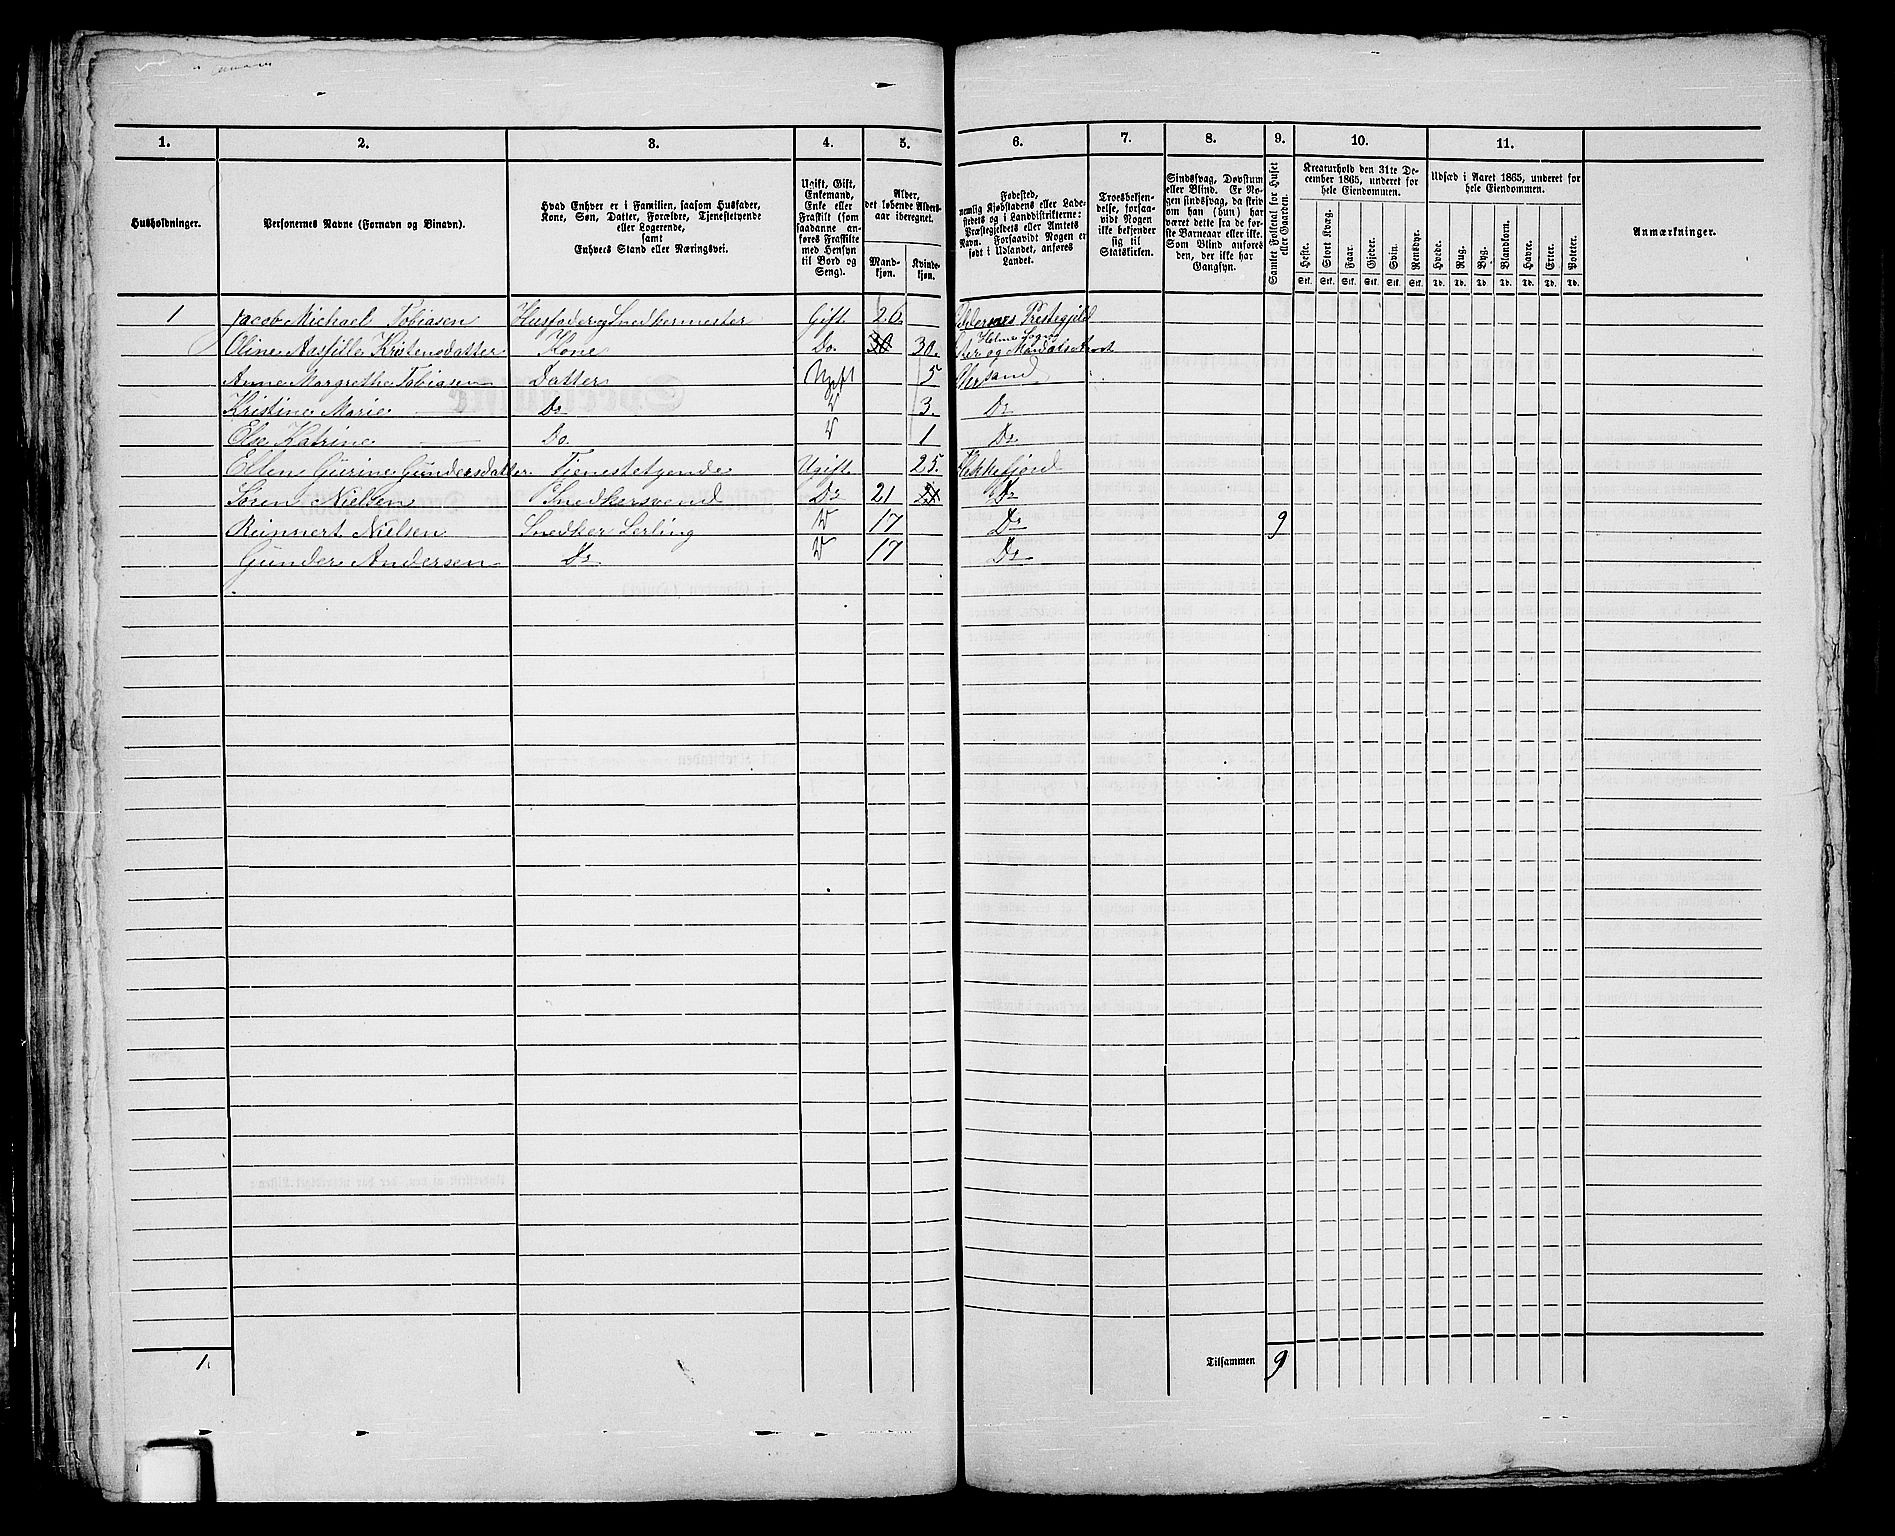 1. 2. 3. 4. 5. 6. 7. 8. 9. 10. 11.
Husholdninger.
Personernes Navne (Fornavn og Binavn).
Hvad Enhver er i Familien, saasom Husfader,
Kone, Søn, Datter, Forældre, Tjenestetyende
eller Logerende,
samt
Enhvers Stand eller Næringsvei.
Ugift, Gift,
Enkemand,
Enke eller
Fraskilt (som
saadanne an-
føres Fraskilte
med Hensyn
til Bord og
Seng).
Alder,
det løbende Alders-
aar iberegnet.
Mand-
kjøn.
Kvinde-
kjøn.
Fødested,
nemlig Kjøbstadens eller Lade-
stedets og i Landdistrikterne:
Præstegjeldets eller Amtets
Navn. Forsaavidt Nogen er
født i Udlandet, anføres
Landet.
Troesbekjen-
delse, forsaa-
vidt Nogen
ikke bekjender
sig til
Statskirken.
Sindssvag, Døvstum
eller Blind. Er No-
gen sindssvag, da skriv
om han (hun) har
været dette fra de før-
ste Barneaar eller ikke.
Som Blind anføres
den, der ikke har
Gangsyn.
Samlet Folketal for Huset
eller Gaarden.
Kreaturhold den 31te De-
cember 1865, underet for
hele Eiendommen.
Heste. Stort Kvæg. Faar. Gjeder. Svin. Rensdyr.
Stk. Stk. Stk. Stk. Stk. Stk.
Udsæd i Aaret 1865, underet for
hele Eiendommen.
Hvede. Rug. Byg. Blandkorn. Havre. Erter. Poteter.
Td. Td. Td. Td. Td. Td. Td.
Anmærkninger.
1 Jacob Michael Tobiasen Husfader og Snedkermester Gift 26 Prestegjeld
Oline Kristensdatter Kone Do. 30 30. Holme Sogn og Mandals
Anne Margrethe Tobiasen Datter Ugift 5
Kristine Marie — Do 3. Do
Else Katrine — Do. 1 Do
Ellen Gurine Gundersdatter Tienestetyende Ugift 25. Flekkefjord
Søren Nielsen Snedkersvend Do 21 21 Do
Reinnert Nielsen Snedker Lerling 17 Do 9
Gunder Andersen Do 17 Do
1. Tilsammen 9